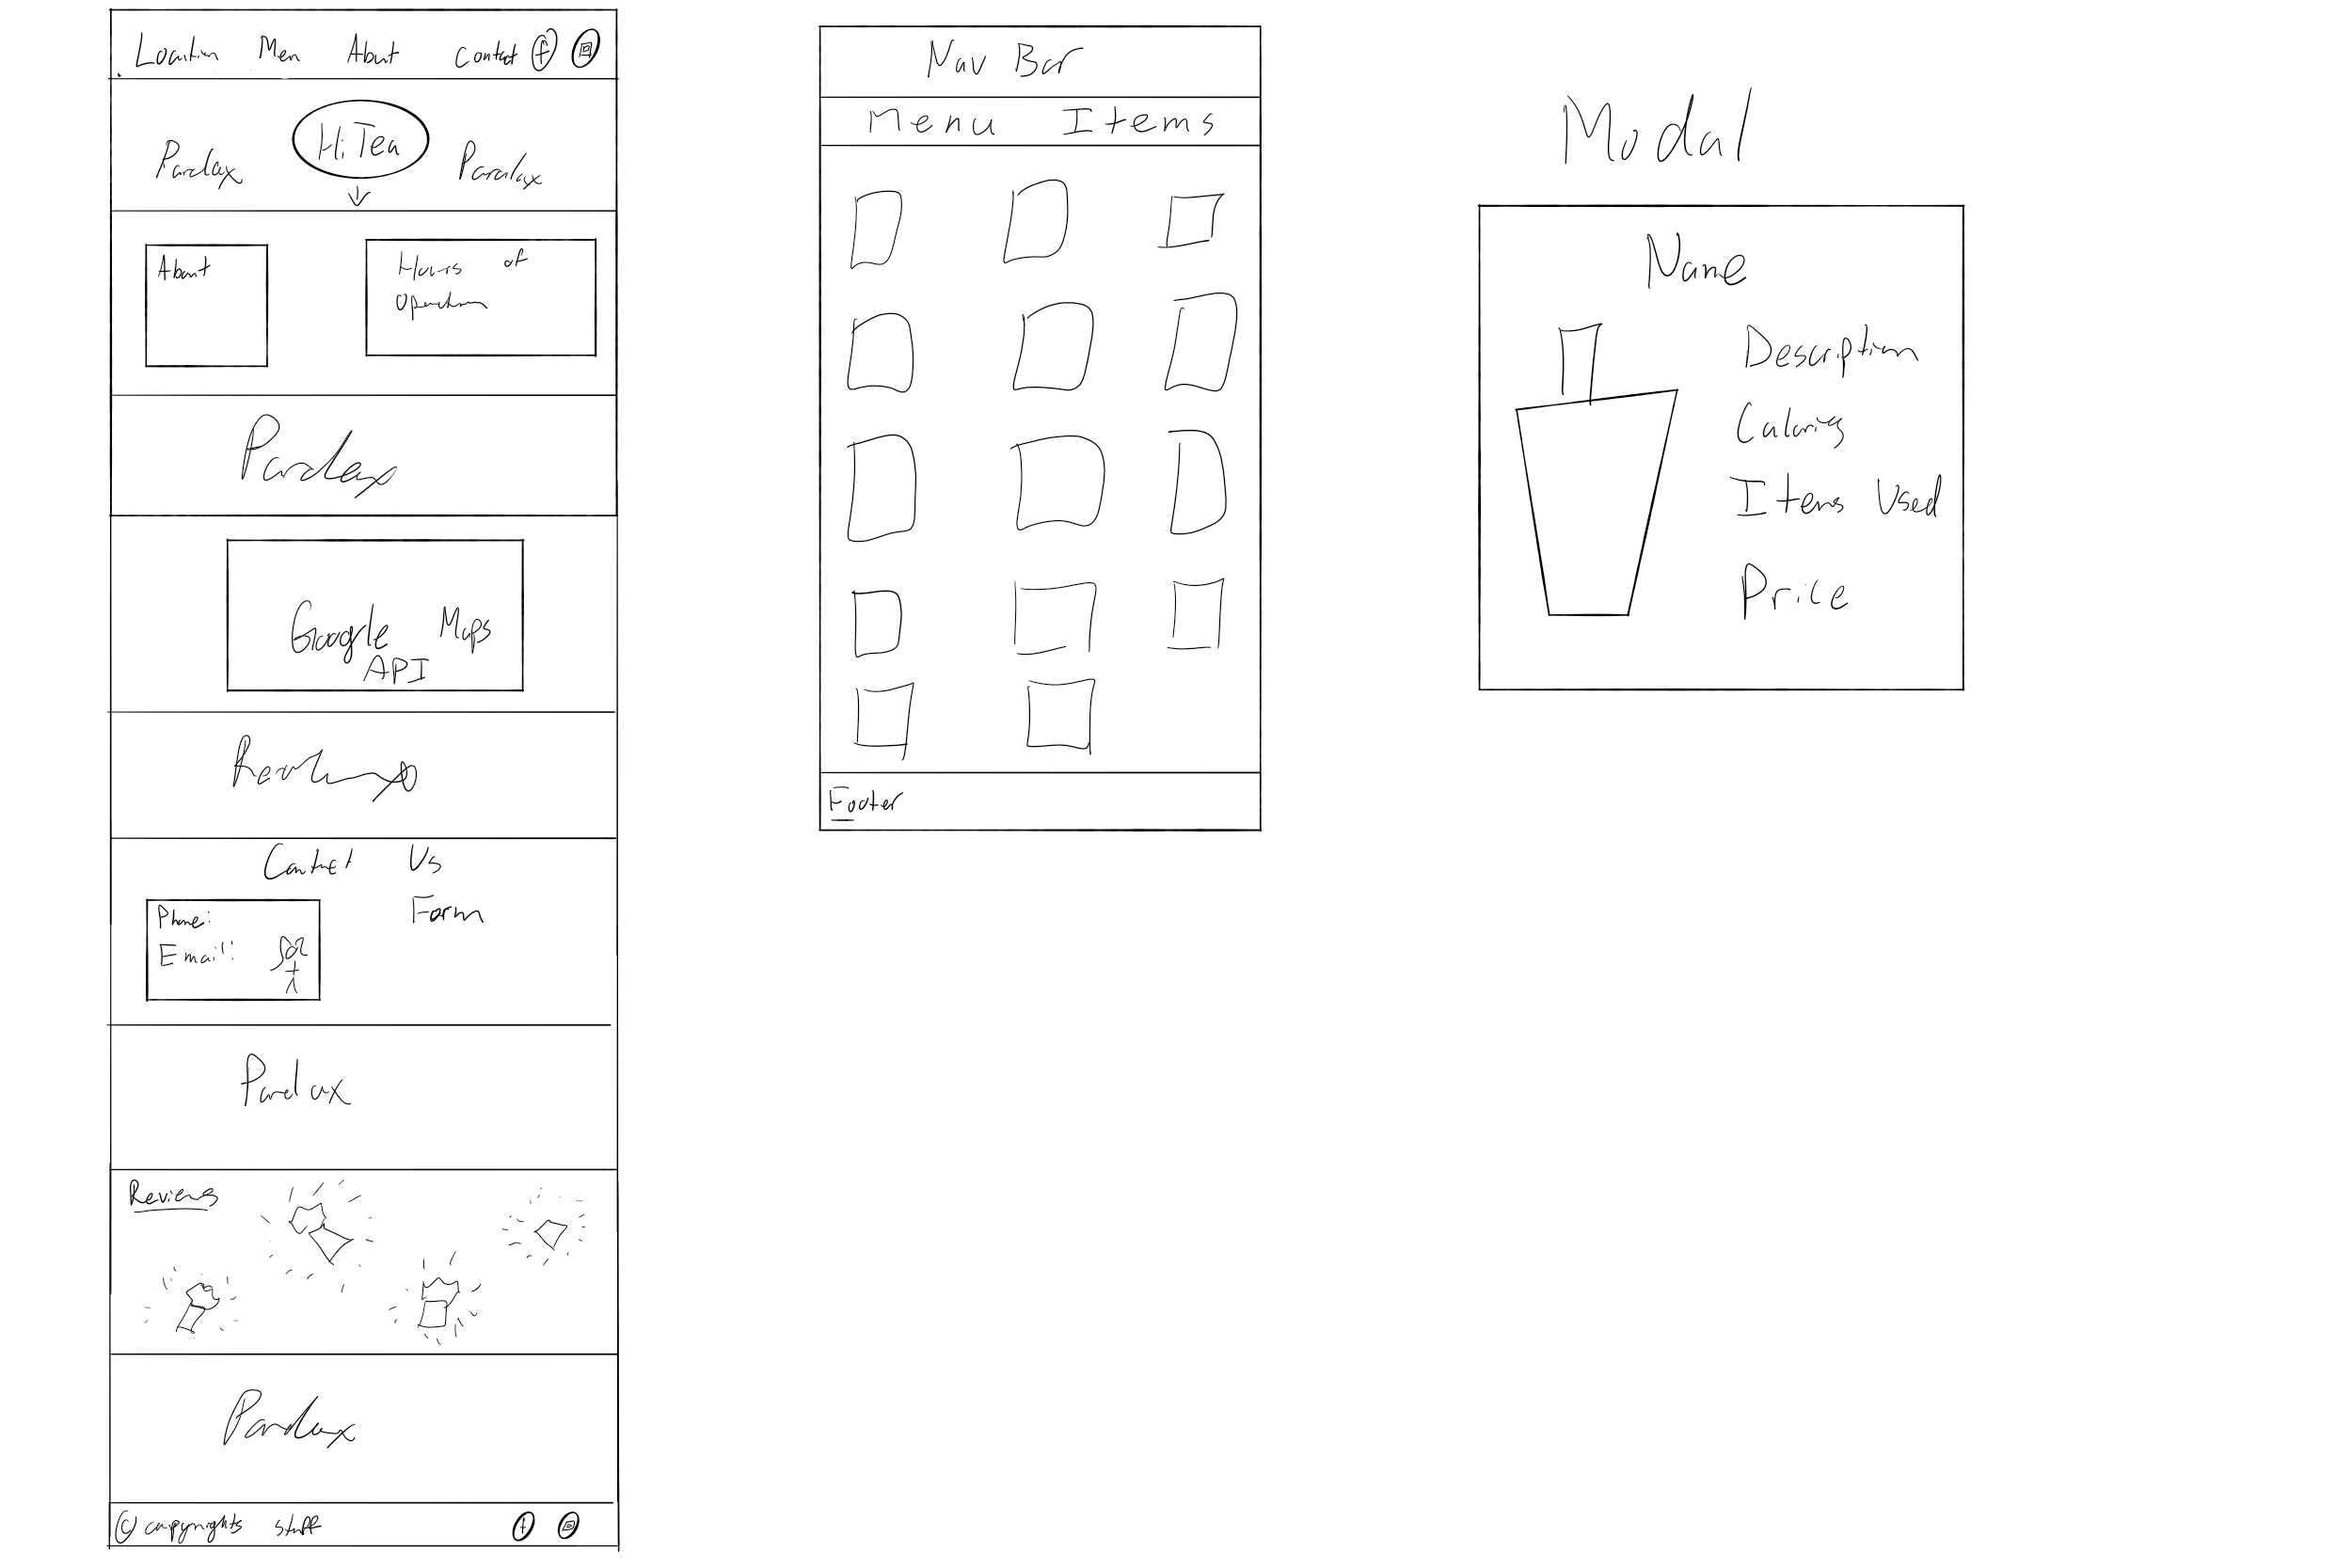 Location Men About Contact f
Paralax HiTea Paralax
About
Hours of
Operation
Paralax
Google Maps
API
Contact Us
Form
Phone:
Email:
Paralax
Reviews
Paralax
© copyrights stuff f
Nav Bar
Menu Items
Footer
Modal
Name
Description
Calories
Items Used
Price